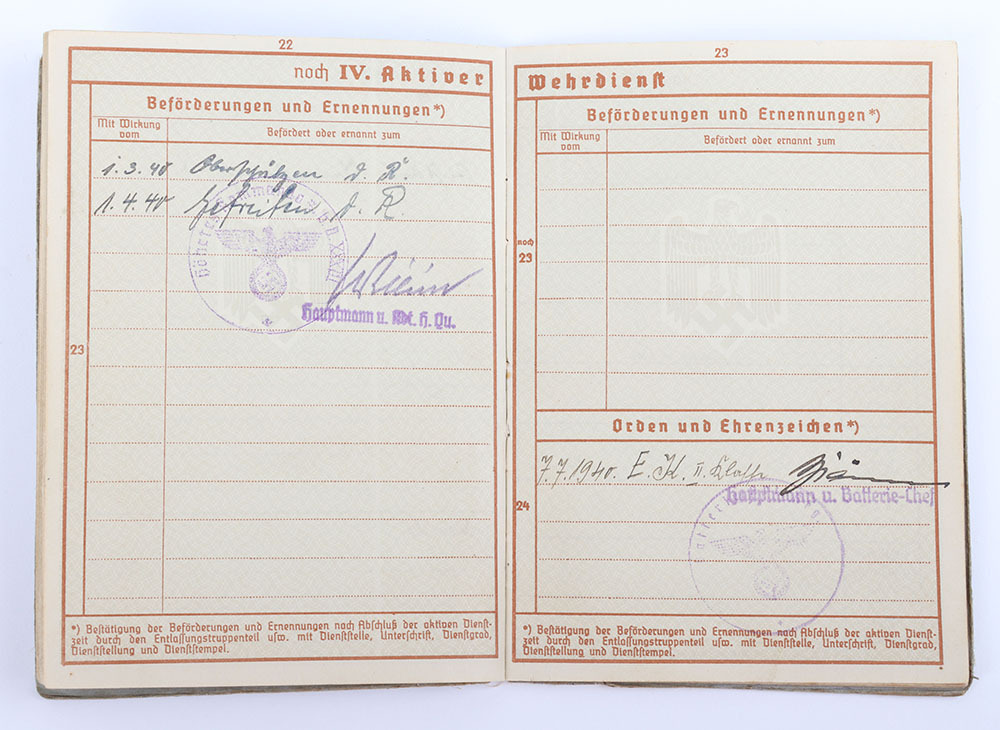 22
noch IV. Aktiver
Beförderungen und Ernennungen*)
Mit Wirkung vom
Befördert oder ernannt zum
1.3.40 Oberschützen d. R.
1.4.40 Gefreiten d. R.
Höheres Kommando z.b.V. XXXII
Hauptmann u. Kdt. H. Qu.
23
*) Bestätigung der Beförderungen und Ernennungen nach Abschluß der aktiven Dienst-
zeit durch den Entlassungstruppenteil usw. mit Dienststelle, Unterschrift, Dienstgrad,
Dienststellung und Dienststempel.
23
Wehrdienst
Beförderungen und Ernennungen*)
Mit Wirkung vom
Befördert oder ernannt zum
noch
23
Orden und Ehrenzeichen*)
7.7.1940. E. K. II. Klasse
Hauptmann u. Batterie-Chef
24
*) Bestätigung der Beförderungen und Ernennungen nach Abschluß der aktiven Dienst-
zeit durch den Entlassungstruppenteil usw. mit Dienststelle, Unterschrift, Dienstgrad,
Dienststellung und Dienststempel.